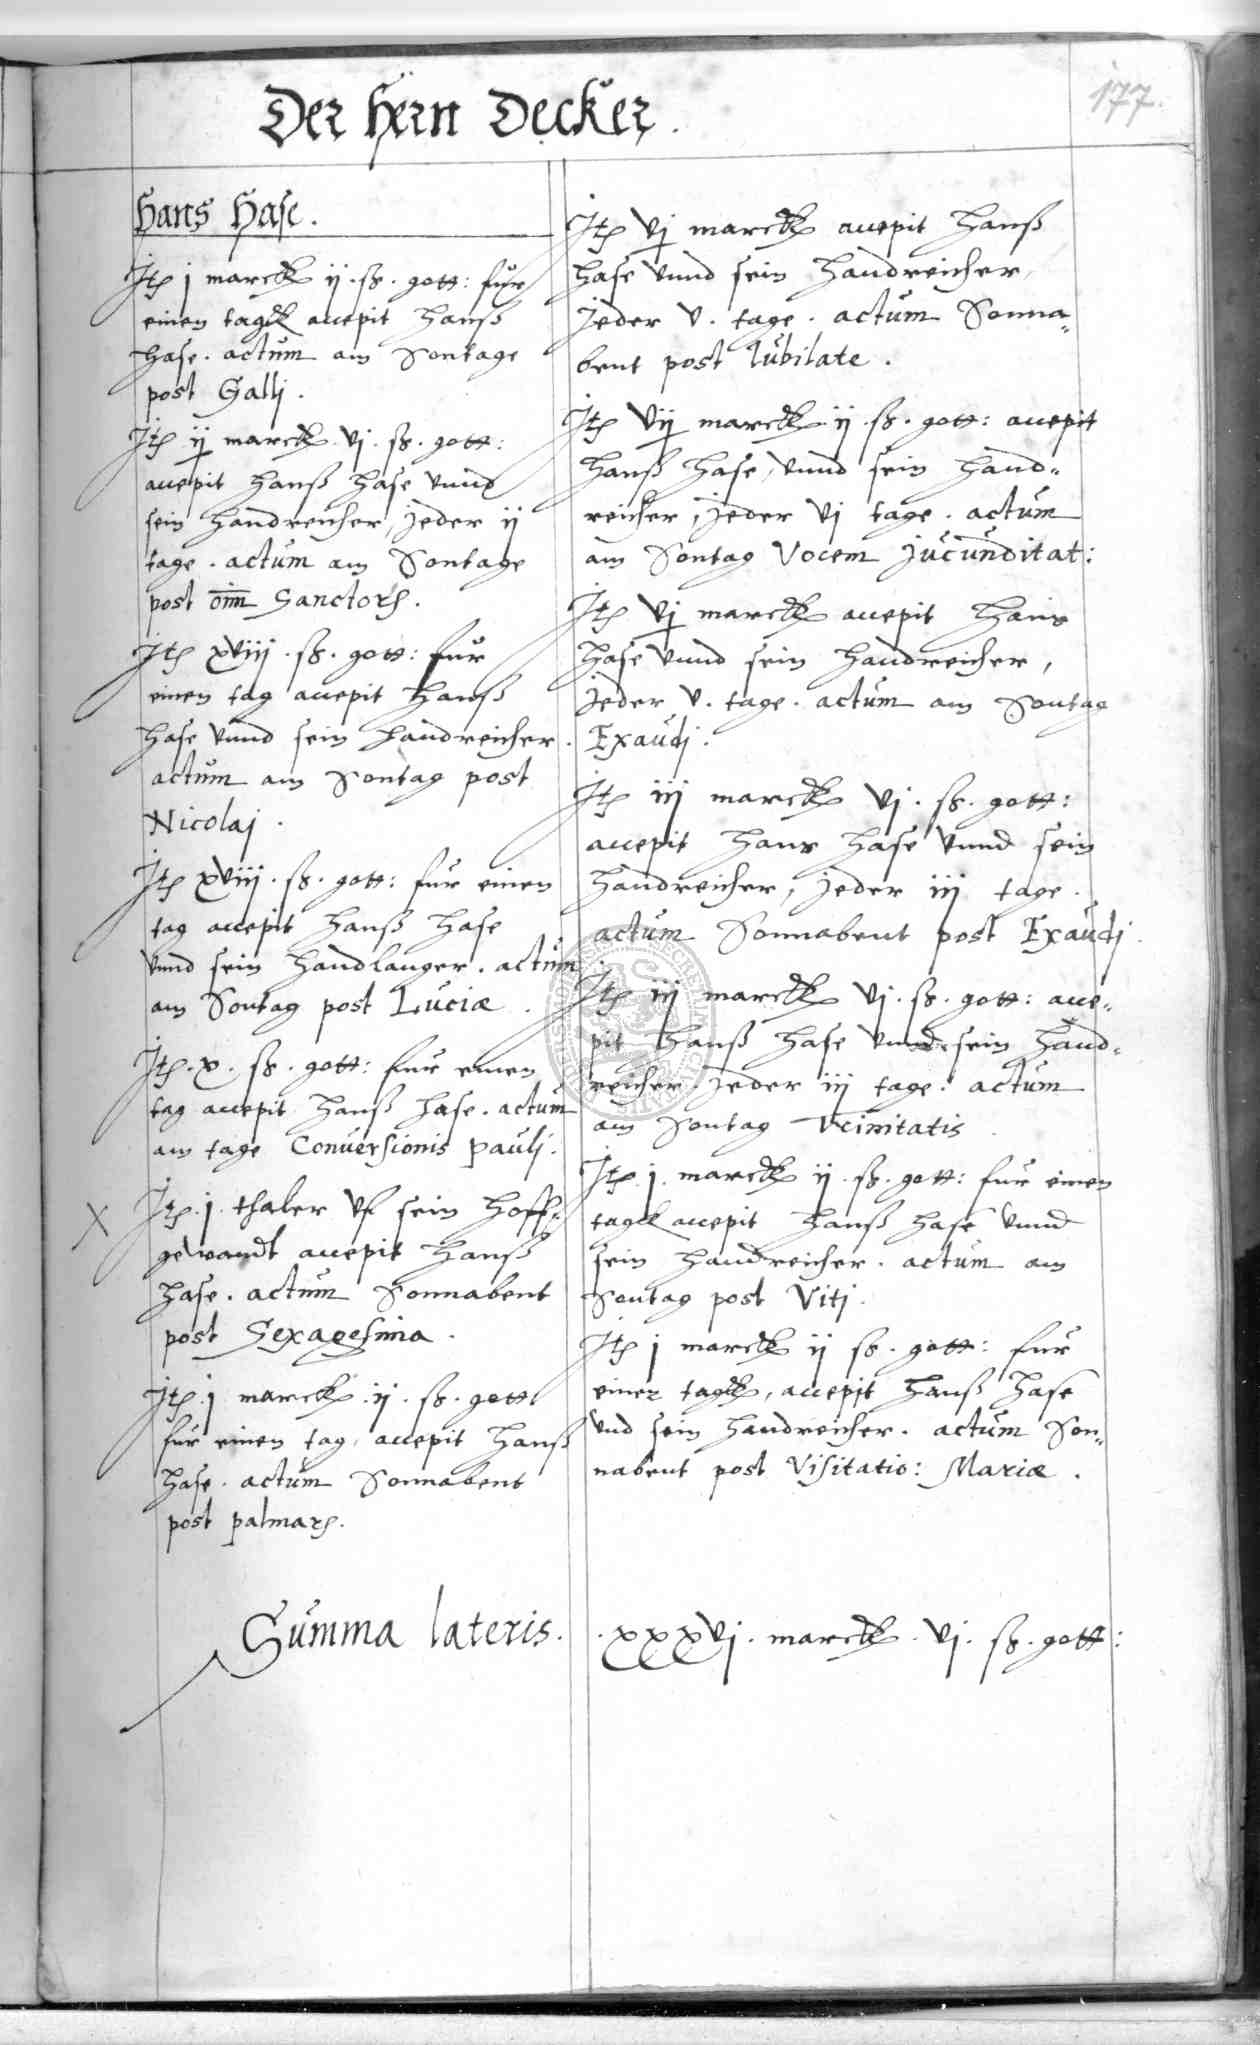 177.
Der Hern Decker.
Hans Hase.
Jtē j marck ij. ß. gott: fur
einen tagk accepit Hanß
Hase. actum am Sontage
post Galli.
Jtē ij marck vj. ß. gott:
accepit Hanß Hase vnnd
sein Handreicher, jeder ij
tage. actum am Sontage
post om̄ Sanctorū.
Jtē xviij. ß. gott: fur
einen tag accepit Hanß
Hase vnnd sein Handreicher.
actum am Sontag post
Nicolaj.
Jtē xviij. ß. gott: fur einen
tag accepit Hanß Hase
vnnd sein Handlanger. actum
am Sontag post Luciæ.
Jtē. x. ß. gott: fur einen
tag accepit Hanß Hase. actum
am tage Conuersionis Paulj.
X Jtē. j. thaler vf sein Hoff=
gewandt accepit Hanß
Hase. actum Sonnabent
post Sexagesima.
Jtē. j marck. ij. ß. gott
fur einen tag, accepit Hanß
Hase. actum Sonnabent
post palmarū.
Jtē vj marck accepit Hanß
Hase vnnd sein Handreicher,
Jeder v. tage. actum Sonna=
bent post Iubilate.
Jtē vij marck ij. ß. gott: accepit
Hanß Hase, vnnd sein Hand=
reicher, jeder vj tage. actum
am Sontag Vocem Jucunditat:
Jtē vj marck accepit Hans
Hase vnnd sein Handreicher,
Jeder v. tage. actum am Sontag
Exaudj.
Jtē iij marck vj. ß. gott:
accepit Hans Hase vnnd sein
Handreicher, jeder iij tage.
actum Sonnabent post Exaudj.
Jtē iij marck vj. ß. gott: acce=
pit Hanß Hase vnnd sein Hand=
reicher. Jeder iij tage. actum
am Sontag Trinitatis.
Jtē. j. marck ij. ß. gott: fur einen
tagk accepit Hanß Hase vnnd
sein Handreicher. actum am
Sontag post Vitj.
Jtē j marck ij ß. gott: fur
einen tagk, accepit Hanß Hase
vnd sein Handreicher. actum Son=
nabent post Visitatio: Mariæ.
Summa lateris. xxxvj. marck. vj. ß. gott: